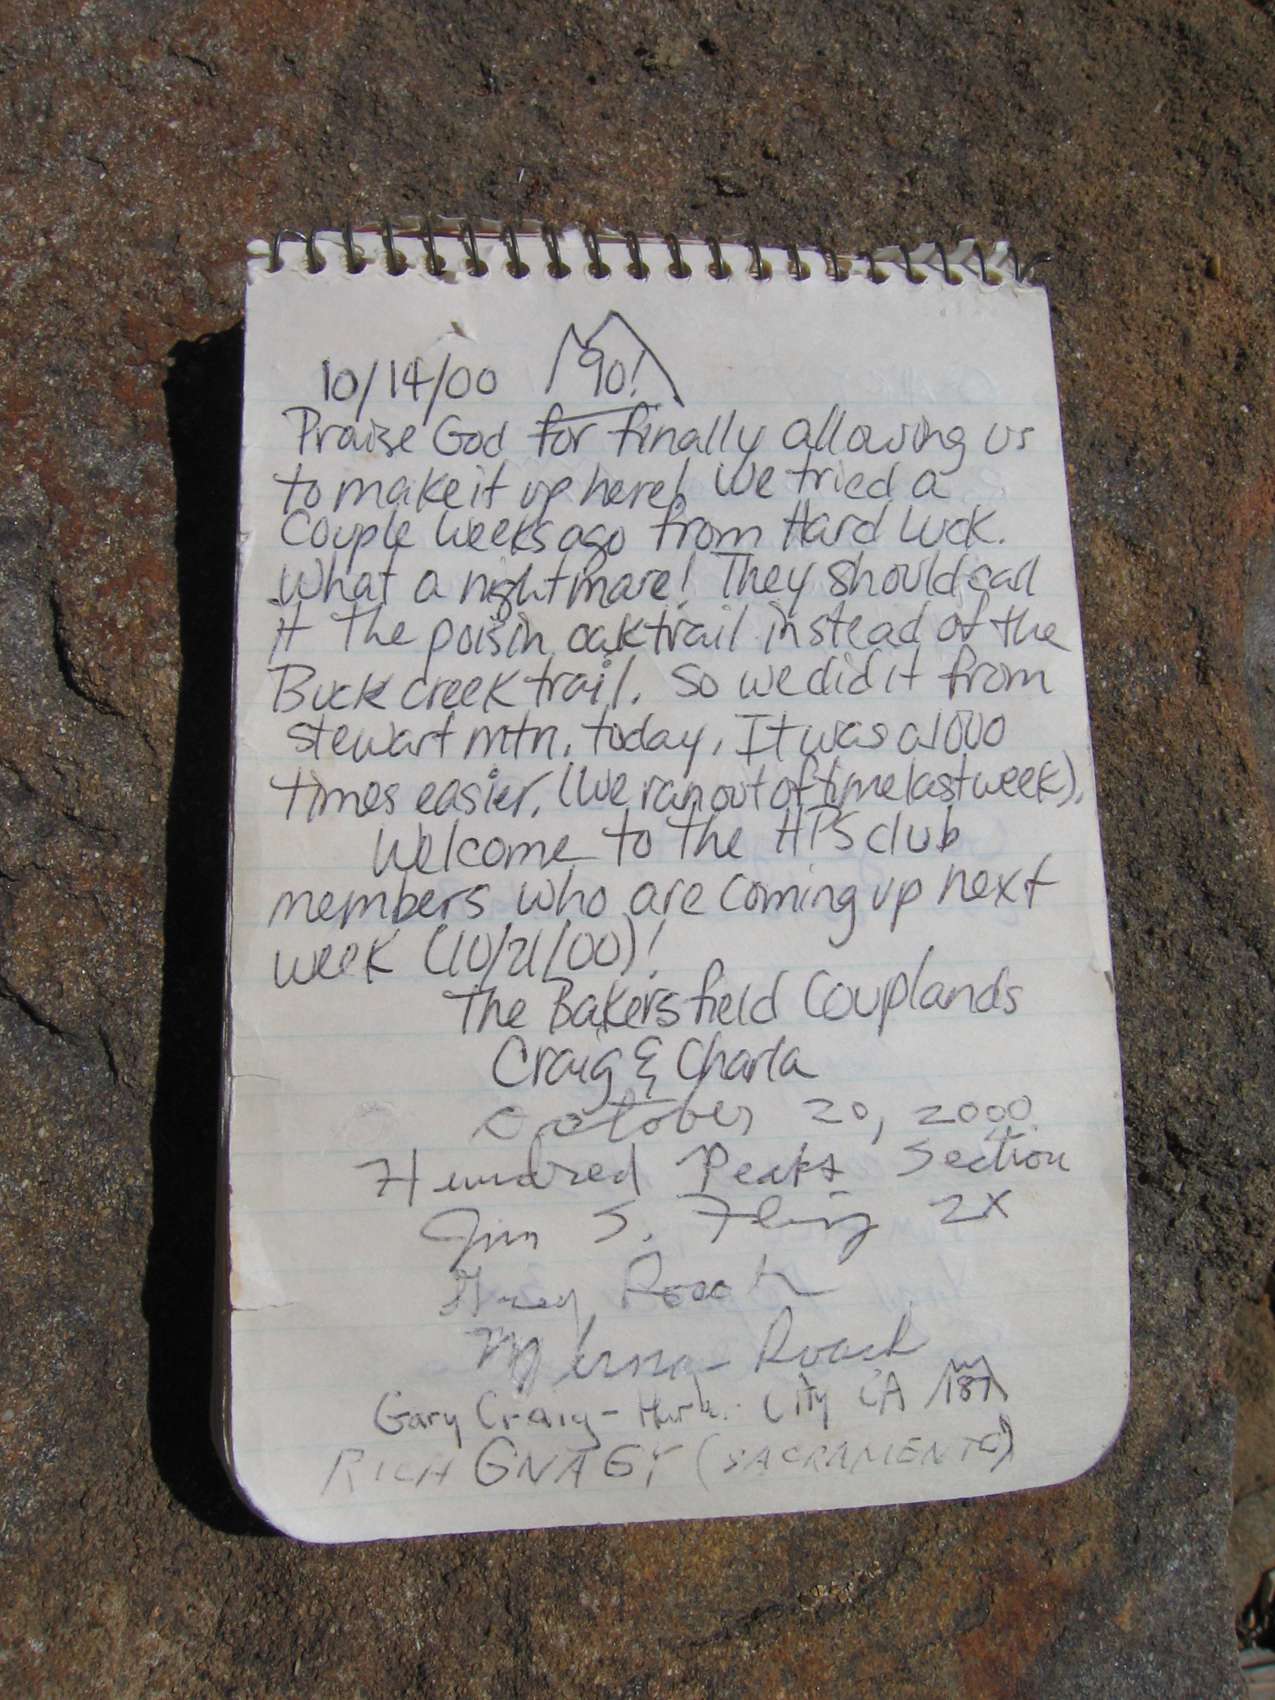 10/14/00 90!
Praise God for finally allowing us
to make it up here! We tried a
couple weeks ago from Hard Luck.
What a nightmare! They should call
it the poisin oak trail instead of the
Buck creek trail. So we did it from
stewart mtn. today. It was a 1000
times easier. (We ran out of time last week).
Welcome to the HPS club
members who are coming up next
week (10/21/00)!
The Bakersfield Couplands
Craig & Charla
October 20, 2000
Hundred Peaks Section
Jim S. Fleming 2X
Roach
Roach
Gary Craig - City CA 187
RICH GNAGY (SACRAMENTO)